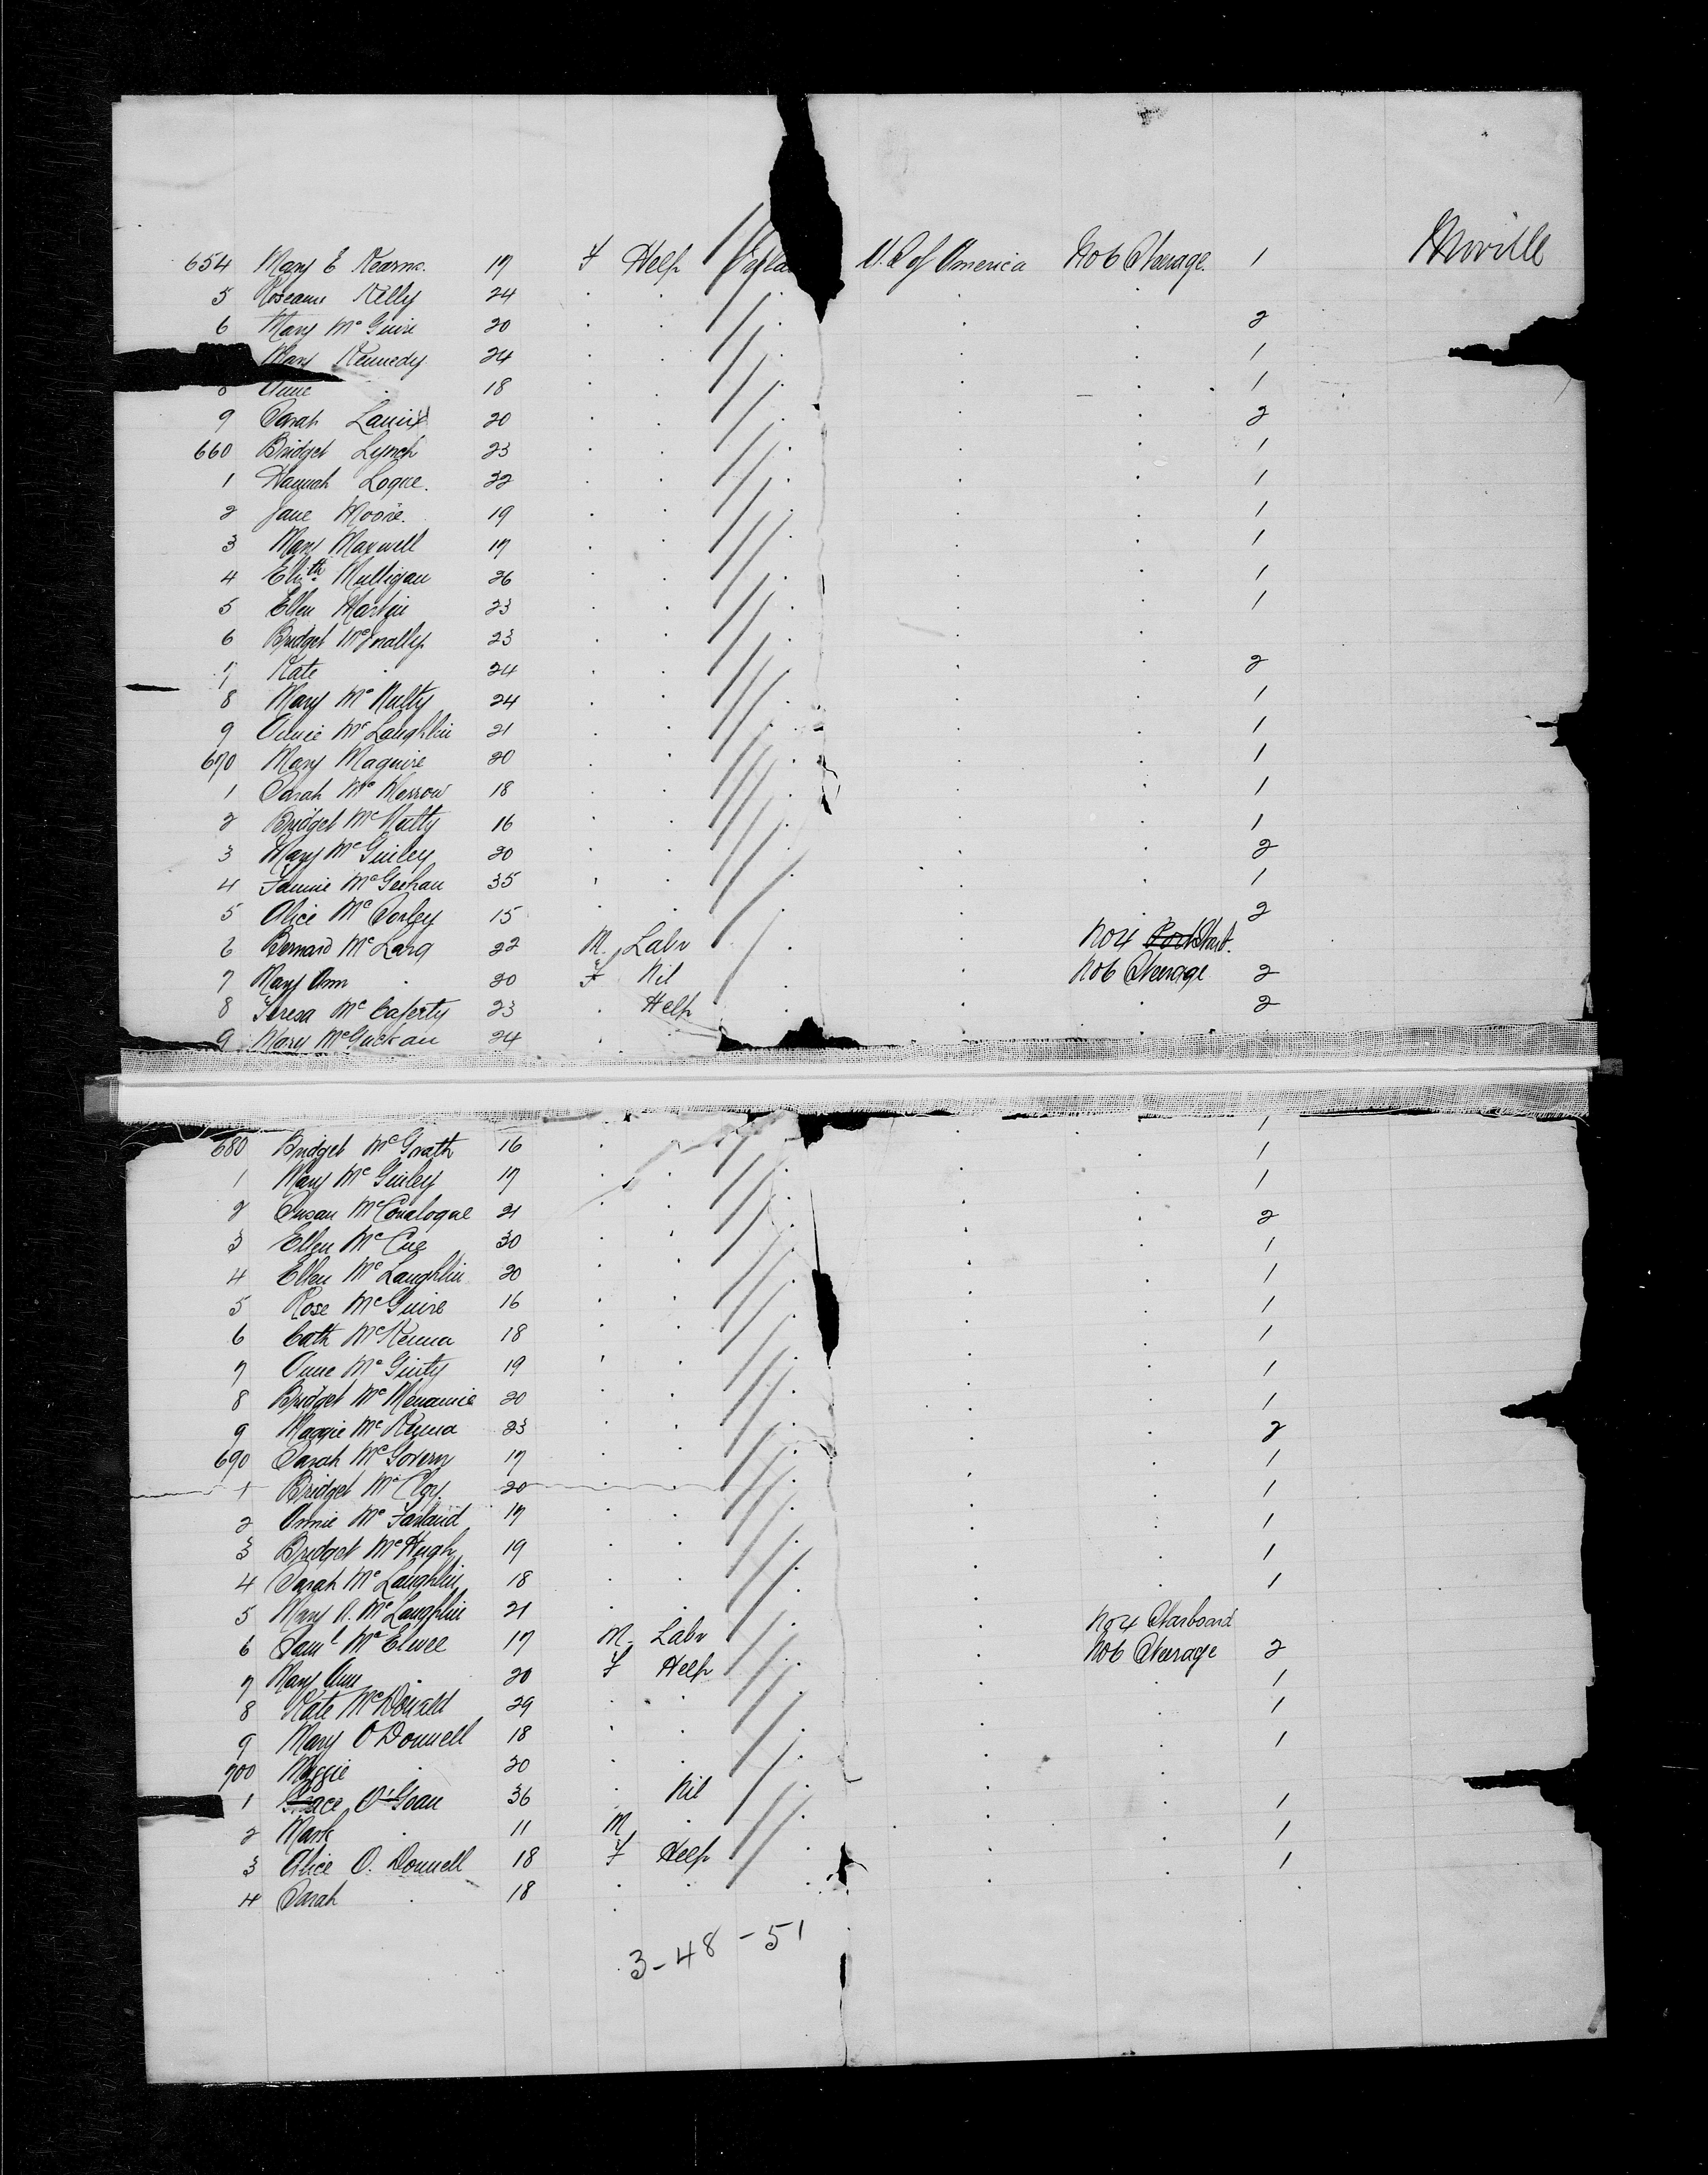 654 Mary E Kearns. 17 F Help Irela U.S of America No 6 Steerage. 1 Moville
5 Roseann Kelly 24
6 Mary McGuire 20 2
Mary Kennedy 24 1
8 Anne 18 1
9 Sarah 20 2
660 Bridget Lynch 23 1
1 Hannah Logue. 32 1
2 Jane Moore. 19 1
3 Mary Maxwell 17 1
4 Elizth Mulligan 26 1
5 Ellen Martin 23 1
6 Bridget McInally 23
7 Kate 24 2
8 Mary McNulty 24 1
9 Annie McLaughlin 21 1
670 Mary Maguire 20 1
1 Sarah McMorrow 18 1
2 Bridget McNulty 16 1
3 Mary McGinley 20 2
4 Fannie McGeehan 35 1
5 Alice McSorley 15 2
6 Bernard McLarg 22 M. Labr No 4 Port Starb.
7 Mary Ann . 20 F Nil No 6 Steerage 2
8 Teresa McCaferty 23 Help 2
9 Mary McGuckan 24
1
680 Bridget McGrath 16 1
1 Mary McGinley 17 1
2 Susan McConalogue 21 2
3 Ellen McCue 30 1
4 Ellen McLaughlin 20 1
5 Rose McGuire 16 1
6 Cath McKenna 18 1
7 Anne McGinty 19 1
8 Bridget McMenamie 20 1
9 Maggie McKenna 23 2
690 Sarah McGovern 17 1
1 Bridget McCloy. 20 1
2 Annie McFarland 17 1
3 Bridget McHugh 19 1
4 Sarah McLaughlin 18 1
5 Mary A. McLaughlin 21
6 Saml McElwee 17 M. Labr No 4 Starboard
7 Mary Ann . 20 F Help No 6 Steerage 2
8 Kate McDonald 29 1
9 Mary O'Donnell 18 1
700 Maggie . 20 1
1 Grace O'Goan 36 Nil
2 Mark . 11 M 1
3 Alice O. Donnell 18 F Help 1
4 Sarah . 18 1
3-48-51